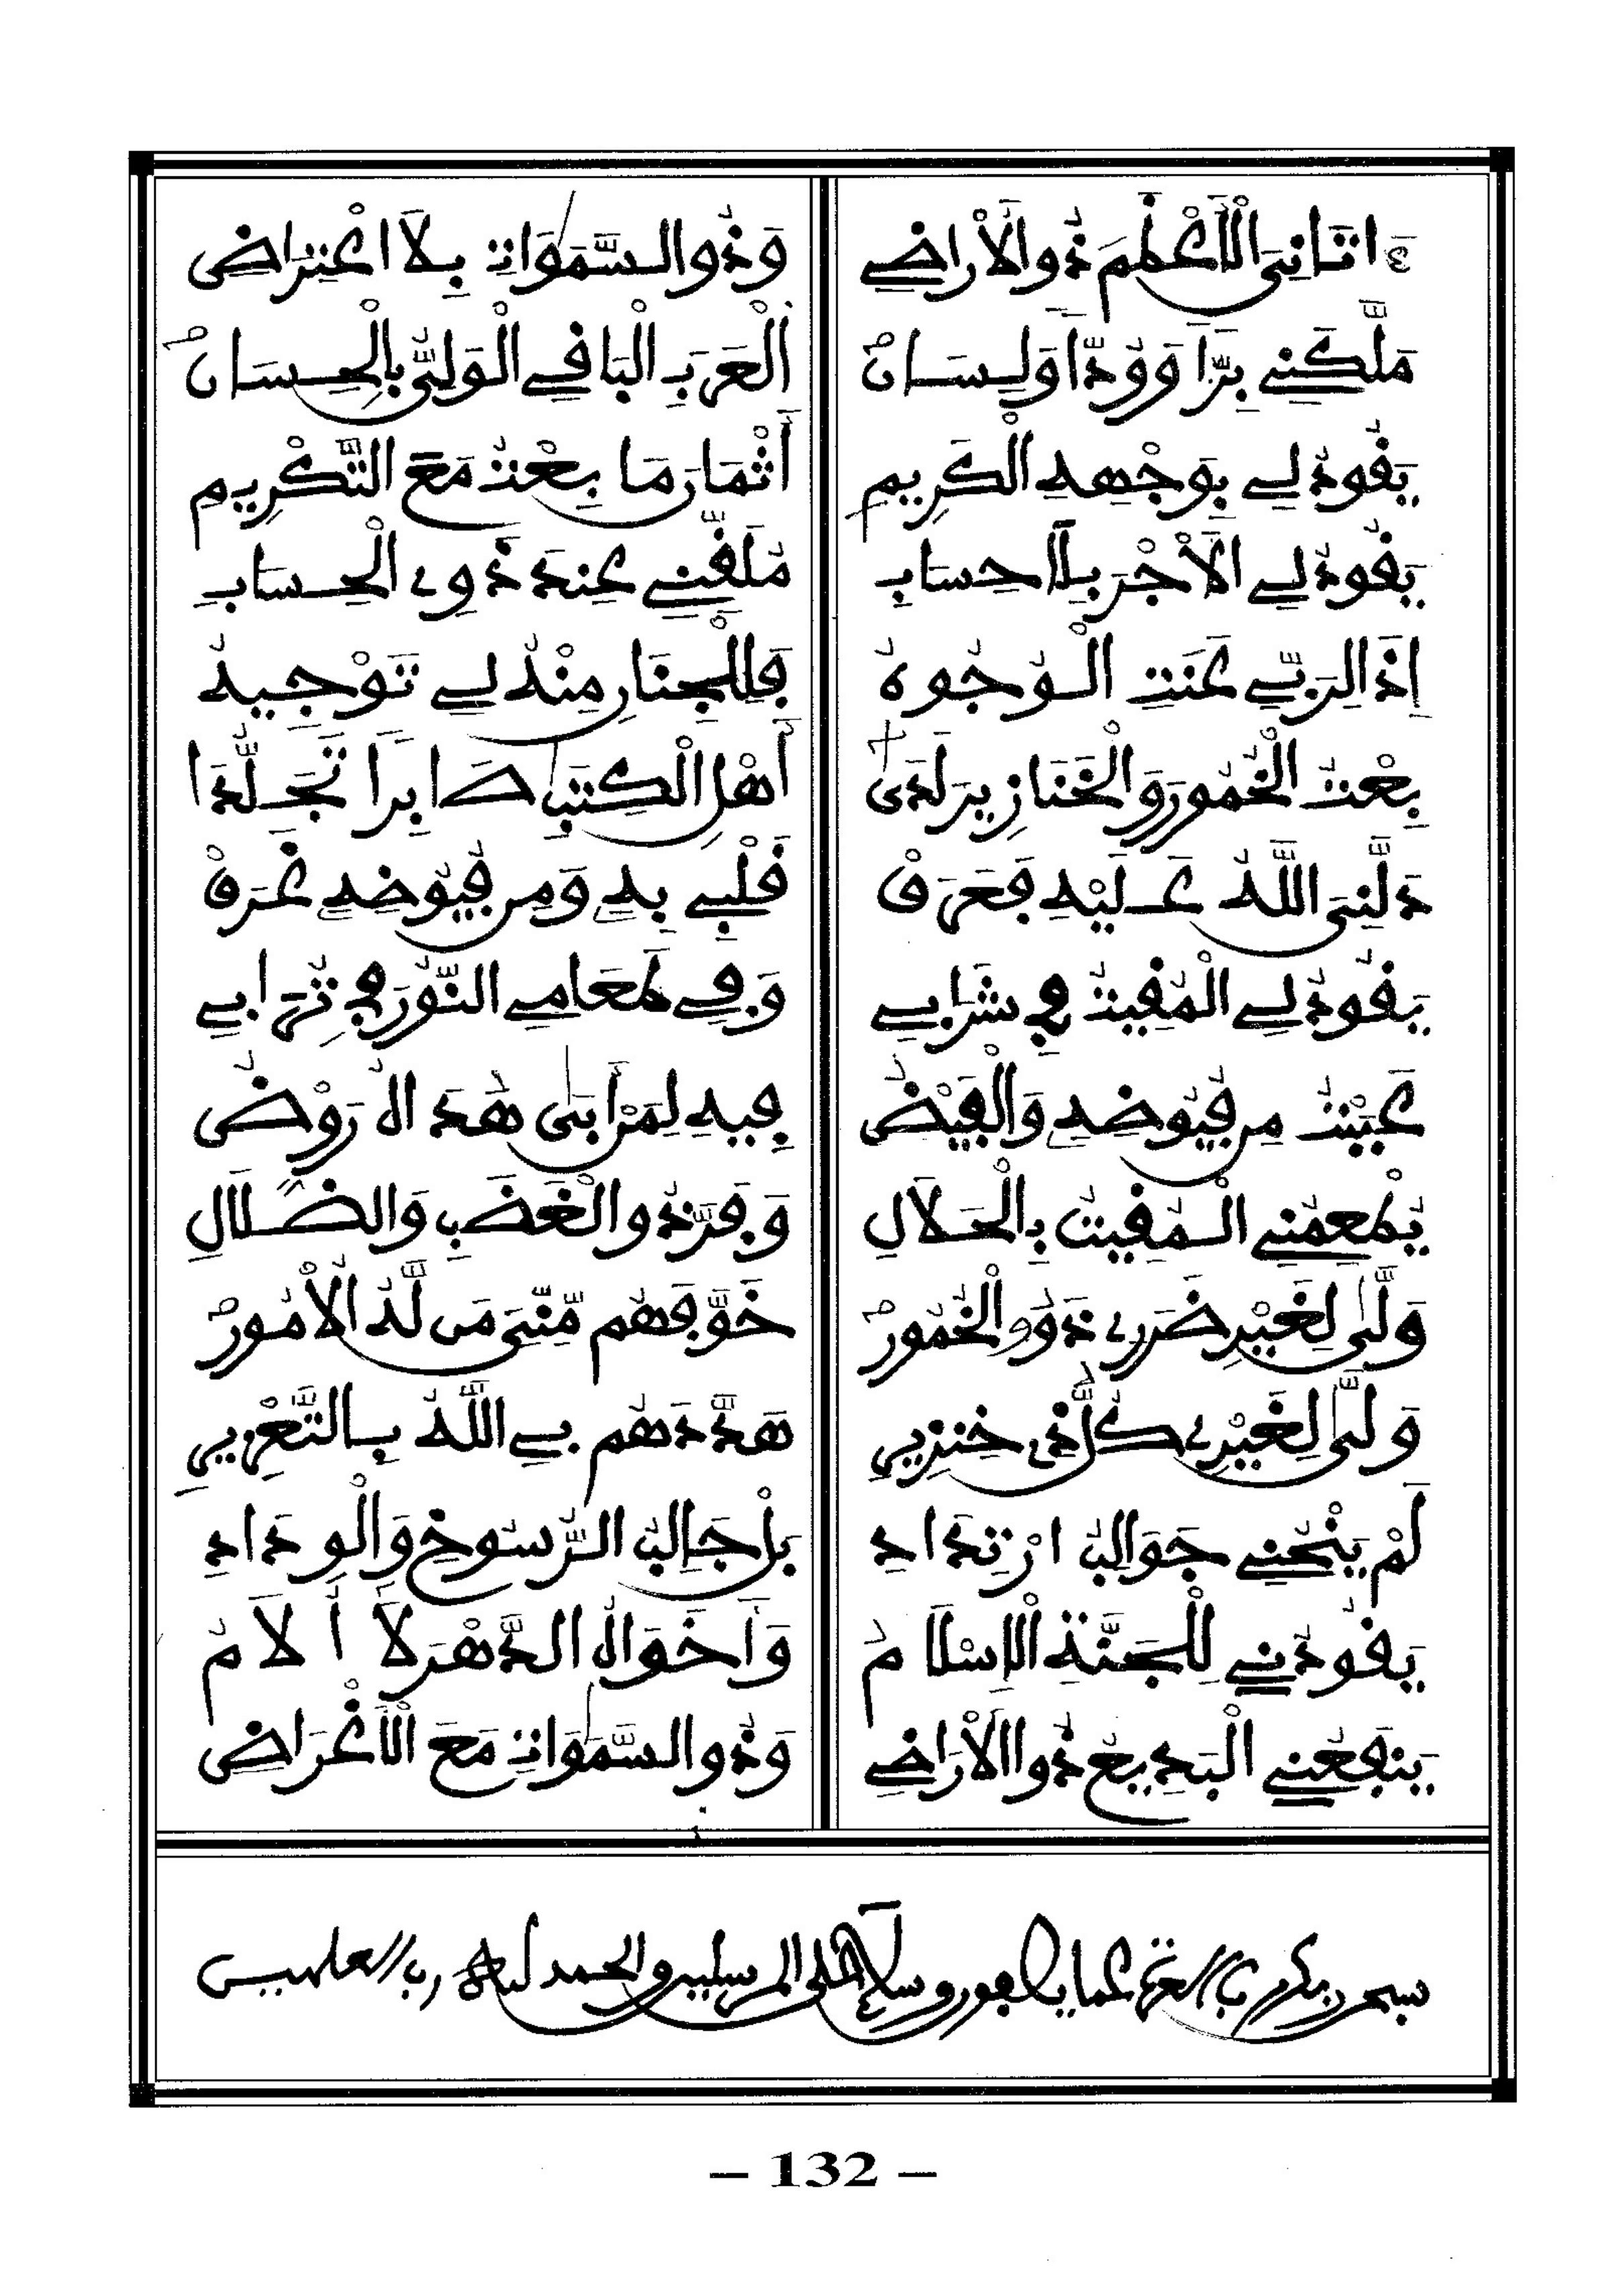 ءاتانِىَ الْأَعْظَمَ ذُو الْأَرَاضِي وَذُو السَّمَوَاتِ بِلَا اعْتِرَاضِ
مَلَّكَنِي بِرًّا وَوُدًّا وَلِسَانْ الْعَرَبِ الْبَاقِي الْوَلِيُّ بِالْحِسَانْ
يَقُودُ لِي بِوَجْهِهِ الْكَرِيمِ أَثْمَارَ مَا بِعْتُ مَعَ التَّكْرِيمِ
يَقُودُ لِي الْأَجْرَ بِلَا حِسَابِ مُلَقِّنِي عِندَ ذَوِي الْحِسَابِ
إِذَا لِرَبِّي عَنَتِ الْوُجُوهُ فَلِلْجِنَانِ مِنْهُ لِي تَوْجِيهُ
بِعْتُ الْخُمُورَ وَالْخَنَازِيرَ لَدَى أَهْلِ الْكِتَبِ صَابِرًا تَجَلُّدَا
دَلَّنِىَ اللَّهُ عَلَيْهِ فَعَرَفْ قَلْبِي بِهِ وَمِن فُيُوضِهِ غَرَفْ
يَقُودُ لِي الْمُقِيتُ فِي شَرَابِي وَفِي طَعَامِي النُّورَ فِي تُرَابِي
عَيَّنتُ مِن فُيُوضِهِ وَالْفَيْضُ فِيهِ لِمَنْ أَبَى هُدَاهُ رَوْضُ
يُطْعِمُنِي الْمُقِيتُ بِالْحَلَالِ وَفَرَّ ذُو الْغَضَبِ وَالضَّلَالِ
وَلَّى لِغَيْرِ ضَرَرِي ذَوُو الْخُمُورْ خَوَّفَهُم مِّنِّىَ مَن لَّهُ الْأُمُورْ
وَلَّى لِغَيْرِي كُلُّ ذِي خِنزِيرِ هَدَّدَهُم بِي اللَّهُ بِالتَّعْزِيرِ
لَمْ يَنْحُنِي جَوَالِبُ ارْتِدَادِ بَلْ جَالِبُ الرُّسُوخِ وَالْوِدَادِ
يَقُودُنِي لِلْجَنَّةِ الْإِسْلَامُ وَأَخَوَاهُ الدَّهْرَ لَا أُلَامُ
يَنفَعُنِي الْبَدِيعُ ذُو الْأَرَاضِي وَذُو السَّمَوَاتِ مَعَ الْأَغْرَاضِ
سبحن ربك رب العزة عما يصفون وسلم على المرسلين والحمد لله رب العلمين
– 132 –